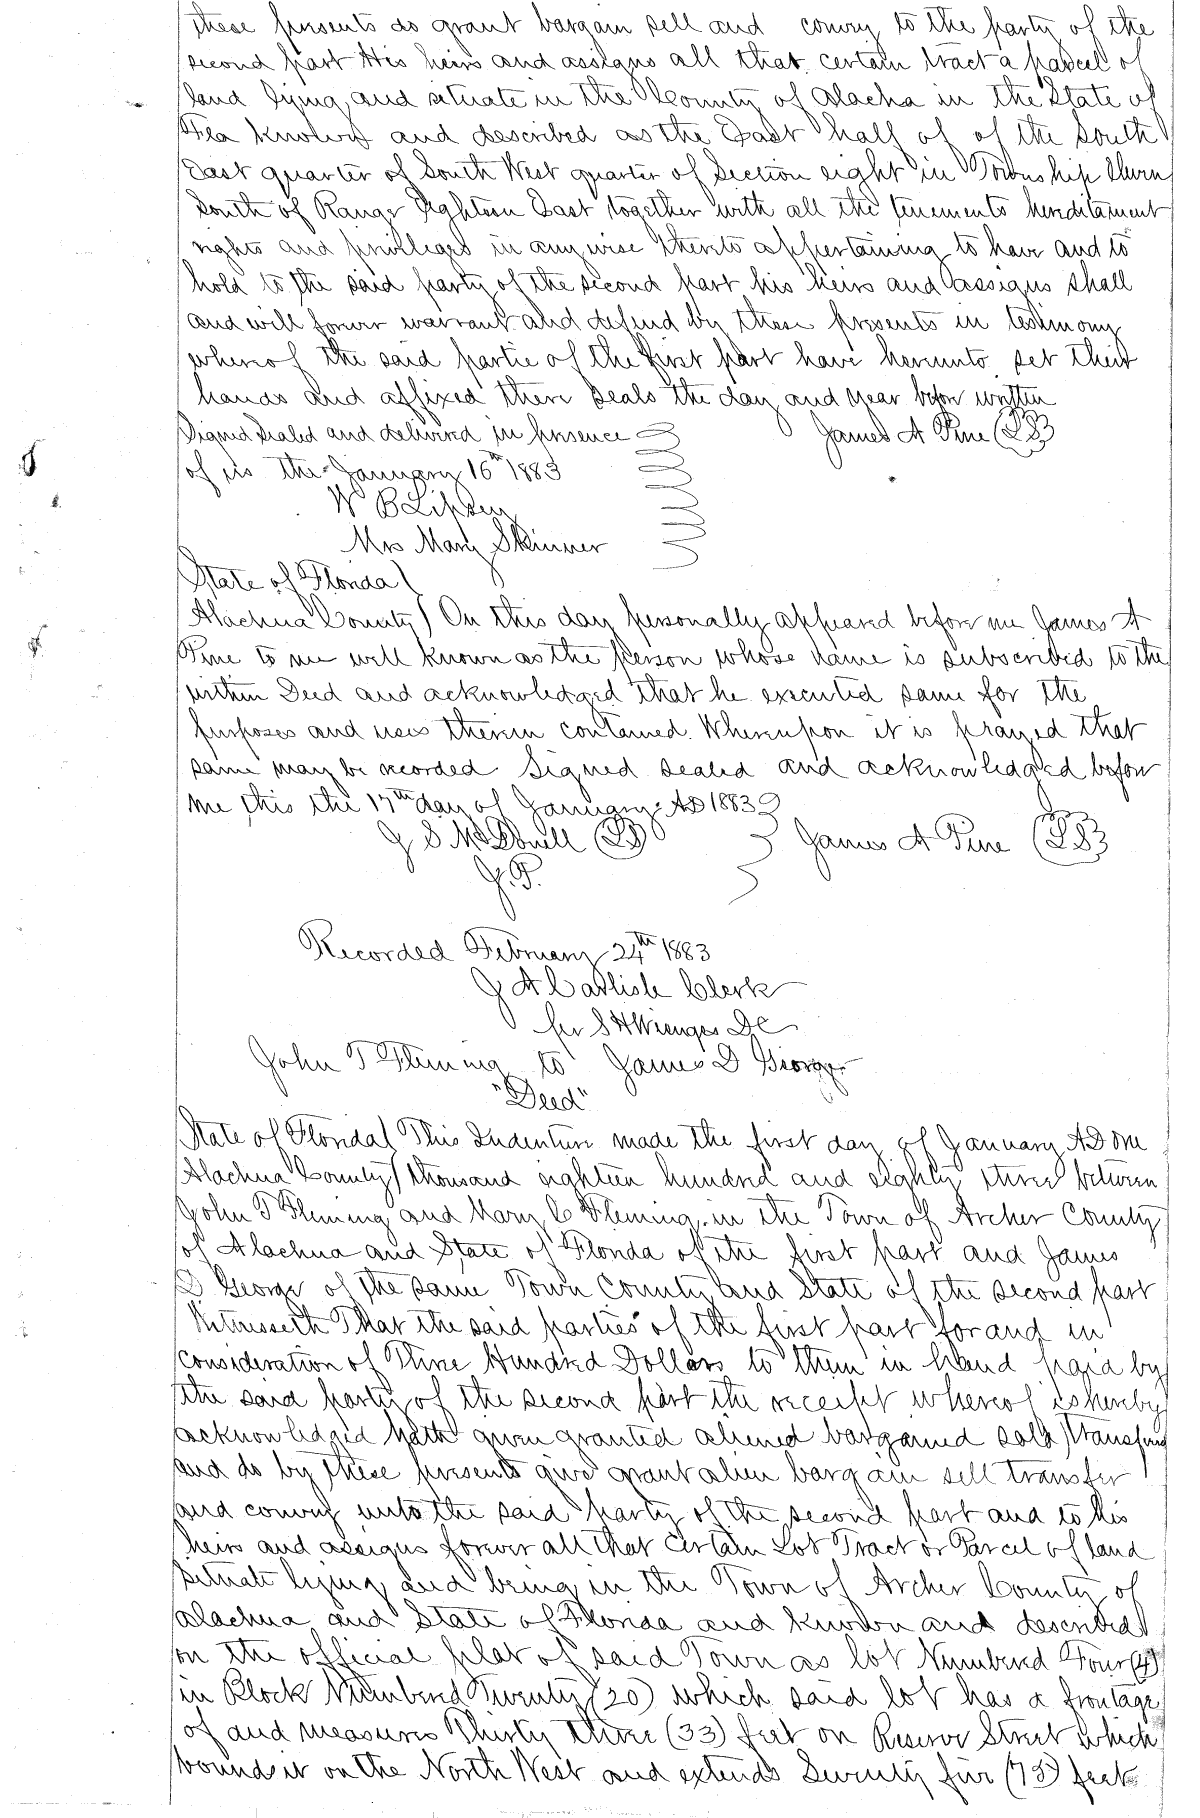 these presents do grant bargain sell and convey to the party of the
second part His heirs and assigns all that certain tract a parcel of
land lying and situate in the County of Alacha in the State of
Fla known and described as the East half of of the South
East quarter of South West quarter of Section eight in Township Eleven
South of Range Eighteen East together with all the tenements hereditament
rights and privileges in any wise thereto appertaining to have and to
hold to the said party of the second part his heirs and assigns shall
and will forever warrant and defend by these presents in testimony
whereof the said partie of the first part have hereunto set their
hands and affixed there seals the day and year before written
Signed Sealed and delivered in presence James A Pine (LS)
of us the January 16th 1883
W B Lipsey
Mrs Mary Skinner
State of Florida)
Alachua County) On this day personally appeared before me James A
Pine to me well known as the person whose name is subscribed to the
within Deed and acknowledged that he executed same for the
purposes and uses therein contained. Whereupon it is prayed that
same may be recorded Signed sealed and acknowledged before
me this the 17th day of January AD 1883
J S McDonell (LS) James A Pine (LS)
J.P.
Recorded February 24th 1883
J A Carlisle Clerk
per S H Wienges DC
John T Fleming to James D George
"Deed"
State of Florida) This Indenture made the first day of January AD One
Alachua County) thousand eighteen hundred and eighty three between
John T Fleming and Mary C Fleming in the Town of Archer County
of Alachua and State of Florida of the first part and James
D George of the same Town County and State of the second part
Witnesseth That the said parties of the first part for and in
consideration of Three Hundred Dollars to them in hand paid by
the said party of the second part the receipt whereof is hereby
acknowledged hath given granted aliened bargained sold transferred
and do by these presents give grant alien bargain sell transfer
and convey unto the said party of the second part and to his
heirs and assigns forever all that certain Lot Tract or Parcel of land
situate lying and being in the Town of Archer County of
Alachua and State of Florida and known and described
on the official plat of said Town as lot Numbered Four (4)
in Block Numbered Twenty (20) which said lot has a frontage
of and measures Thirty three (33) feet on Reserve Street which
bounds it on the North West and extends Seventy five (75) feet